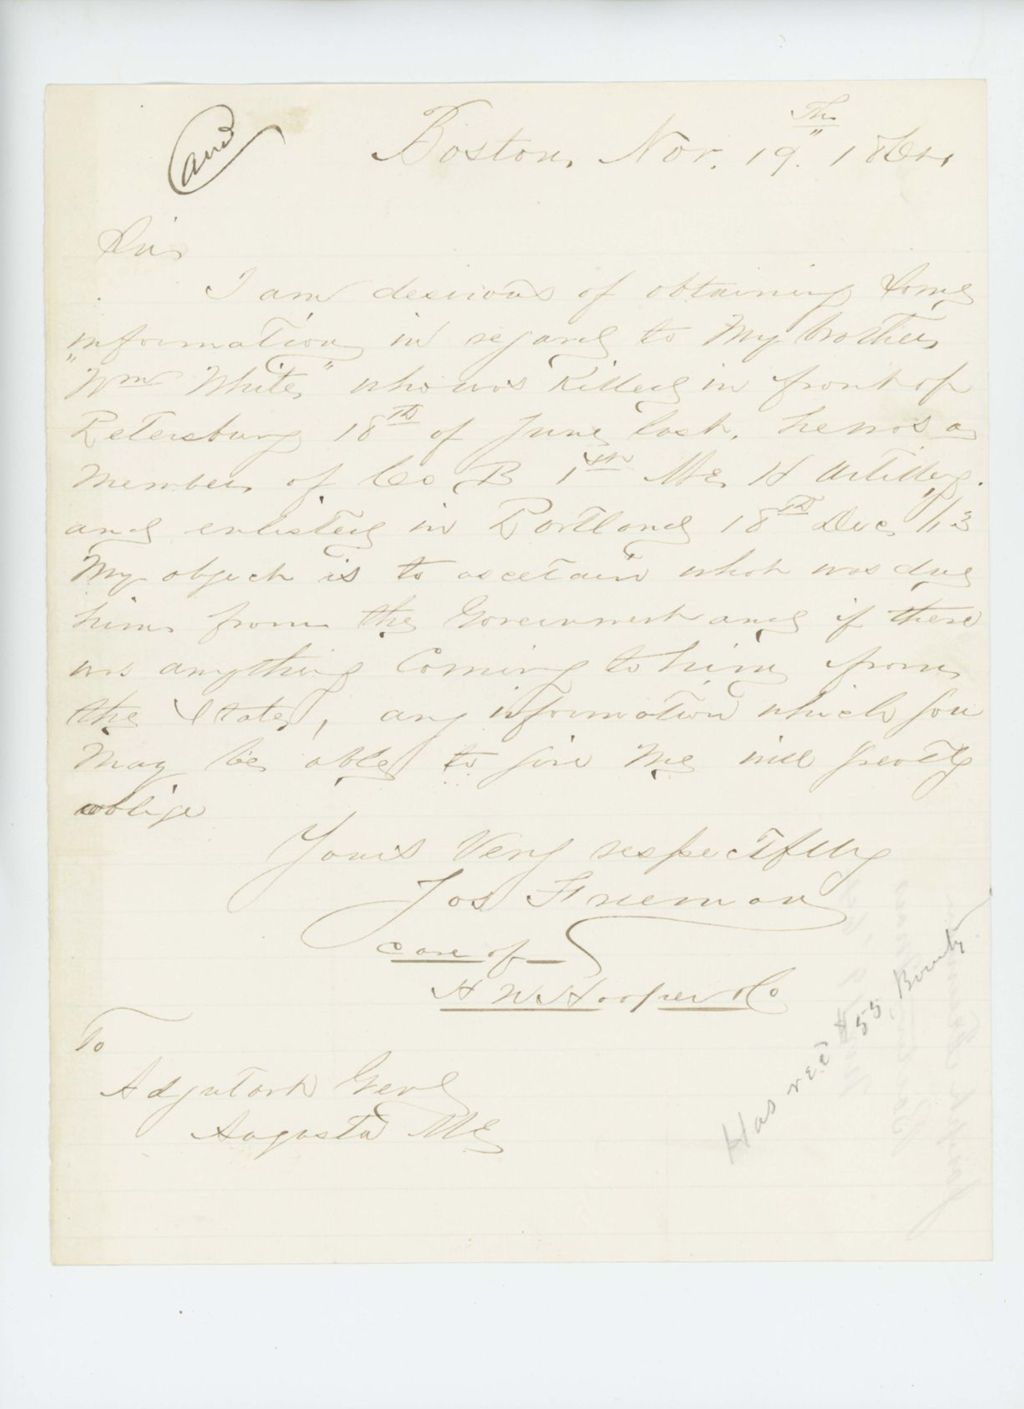 ans
Boston, Nor. 19th 1864
Sir
I am desirous of obtaining Some
information in regard to My brother
"Wm White" who was Killed in front of
Petersburg 18th of June last. he was a
Member of Co B 1st Me H Artillery.
and enlisted in Portland 18th Dec, /63
My object is to ascetain what was due
him from the Government and if there
was anything Coming to him from
the State, any information which you
May be able to give Me will greatly
oblige
Yours Very respectfully
Jos Freeman
care of
H W Hooper & Co
To
Adjutant Genl
Augusta Me
Has rec'd $55 Bounty